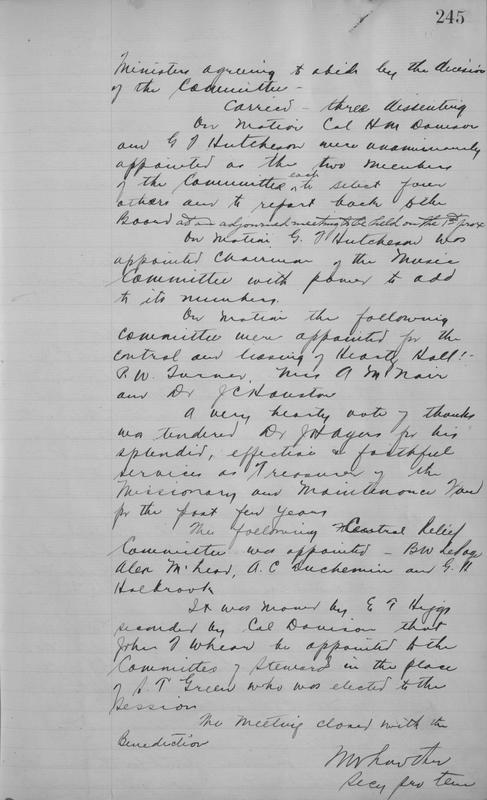 245
Ministers agreeing to abide by the decision
of the Committee -
Carried - three dissenting
On Motion Col H M Davison
and G F Hutcheson were unanimously
appointed as the two members
of the Committee each to select four
others and to report back to the
Board at an adjourned meeting to be held on the 1st prox
On motion G. F Hutcheson was
appointed Chairman of the Music
Committee with power to add
to its members.
On motion the following
Committee were appointed for the
control and leasing of Heartz Hall:-
P. W. Turner, Miss A McNair
and Dr J C. Houston
A very hearty vote of thanks
was tendered Dr J H Ayers for his
splendid, effective & faithful
services as Treasurer of the
Missionary and Maintenance Fund
for the past few years
The following Central Relief
Committee was appointed - B W LePage
Alex McLeod, A. C Duchemin and G. H
Holbrook
It was moved by E T Higgs
seconded by Col Davison that
John F Whear be appointed to the
Committee of Stewards in the place
of S. T Green who was elected to the
Session
The Meeting closed with the
Benediction
Secy pro tem